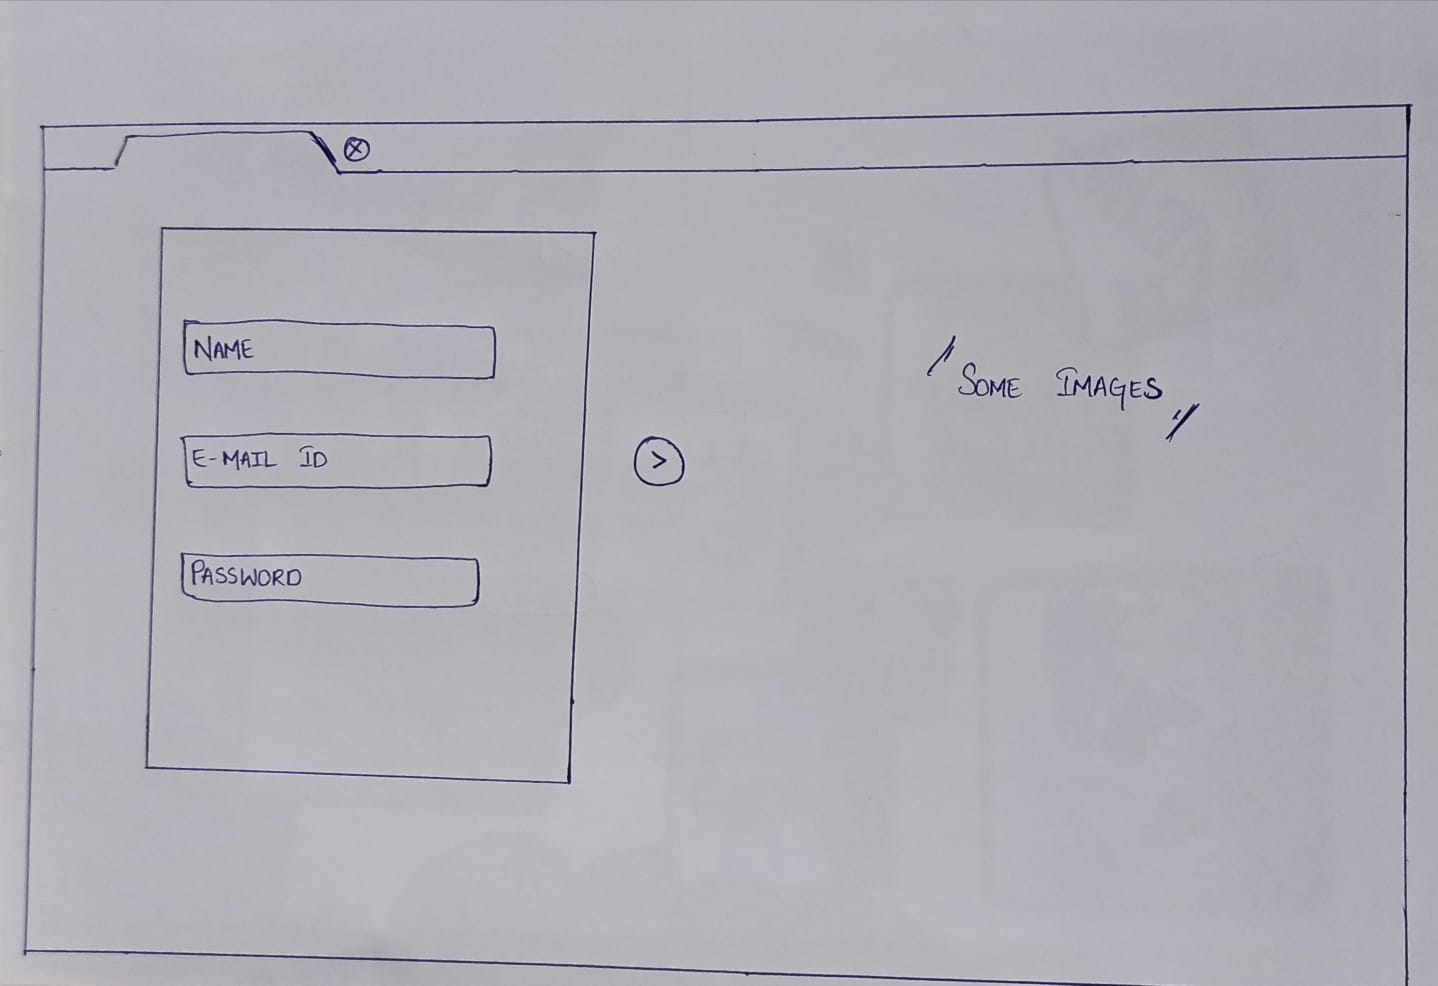 NAME
E-MAIL ID
>
PASSWORD
"SOME IMAGES"